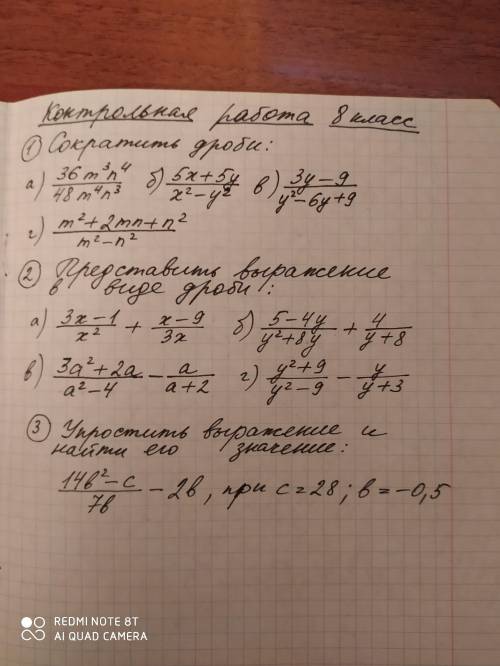 Контрольная работа 8 класс
① Сократить дроби:
а) 36m³n⁴/48m⁴n³ б) 5x+5y/x²−y² в) 3y−9/y²−6y+9
г) m²+2mn+n²/m²−n²
② Представить выражение
в виде дроби:
а) 3x−1/x² + x−9/3x б) 5−4y/y²+8y + 4/y+8
в) 3a²+2a/a²−4 − a/a+2 г) y²+9/y²−9 − y/y+3
③ Упростить выражение и
найти его значение:
14в²−c/7в − 2в, при c=28; в=−0,5
REDMI NOTE 8T
AI QUAD CAMERA